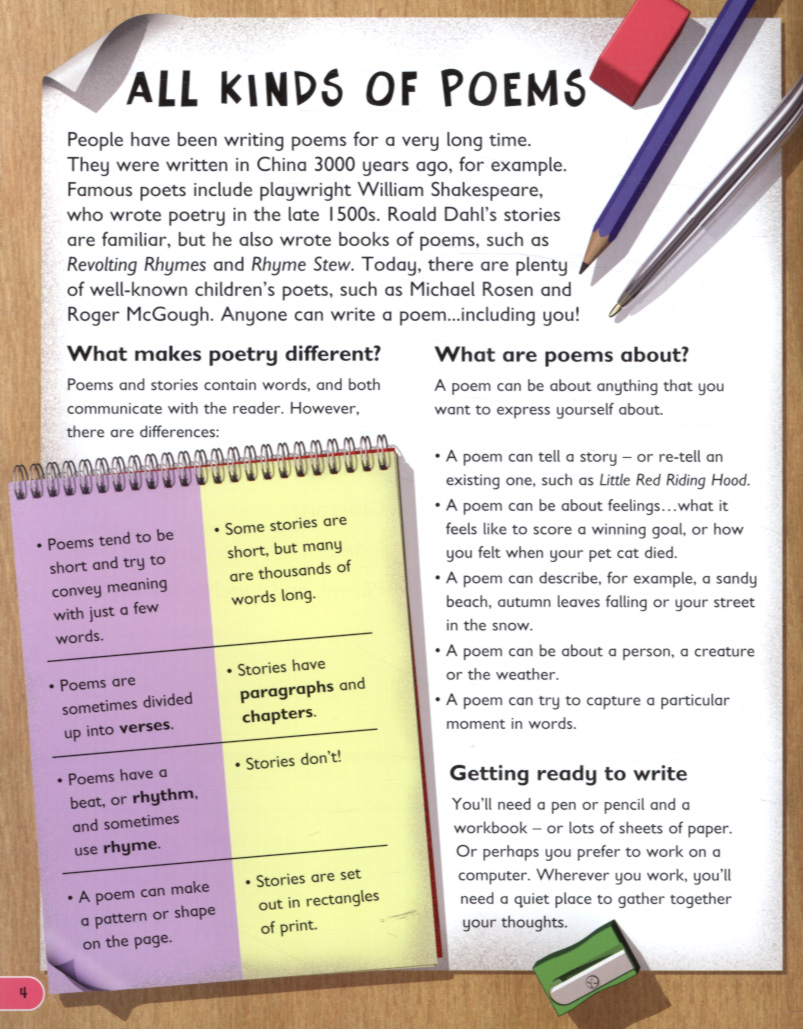 ALL KINDS OF POEMS
People have been writing poems for a very long time.
They were written in China 3000 years ago, for example.
Famous poets include playwright William Shakespeare,
who wrote poetry in the late 1500s. Roald Dahl's stories
are familiar, but he also wrote books of poems, such as
Revolting Rhymes and Rhyme Stew. Today, there are plenty
of well-known children's poets, such as Michael Rosen and
Roger McGough. Anyone can write a poem...including you!
What makes poetry different?
Poems and stories contain words, and both
communicate with the reader. However,
there are differences:
• Poems tend to be
short and try to
convey meaning
with just a few
words.
• Some stories are
short, but many
are thousands of
words long.
• Poems are
sometimes divided
up into verses.
• Stories have
paragraphs and
chapters.
• Poems have a
beat, or rhythm,
and sometimes
use rhyme.
• Stories don't!
• A poem can make
a pattern or shape
on the page.
• Stories are set
out in rectangles
of print.
What are poems about?
A poem can be about anything that you
want to express yourself about.
• A poem can tell a story – or re-tell an
existing one, such as Little Red Riding Hood.
• A poem can be about feelings...what it
feels like to score a winning goal, or how
you felt when your pet cat died.
• A poem can describe, for example, a sandy
beach, autumn leaves falling or your street
in the snow.
• A poem can be about a person, a creature
or the weather.
• A poem can try to capture a particular
moment in words.
Getting ready to write
You'll need a pen or pencil and a
workbook – or lots of sheets of paper.
Or perhaps you prefer to work on a
computer. Wherever you work, you'll
need a quiet place to gather together
your thoughts.
4